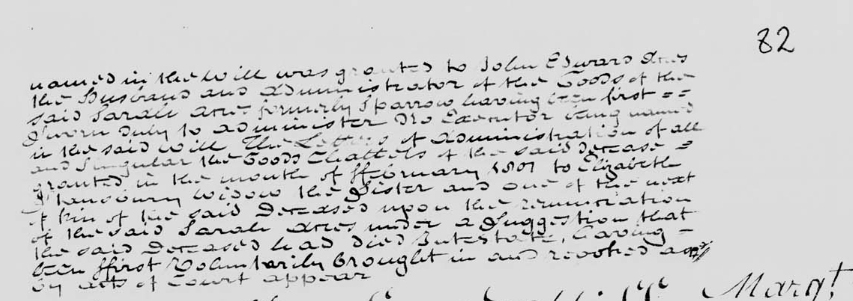 82
named in the Will was granted to John Edward Ares
the Husband and Administrator of the Goods of the
said Sarah Ares formerly Sparrow having been first ==
Sworn Duly to administer No Executor being named
in the said Will The Letters of Administration of all
and Singular the Goods Chattels of the said decease =
granted in the month of ffebruary 1801 to Elizabeth
widow the Sister and one of the next
of kin of the said Deceased upon the renunciation
of the said Sarah Ares under a Suggestion that
the said Deceased had died Intestate, having =
been ffirst Voluntarily brought in and revoked as
by acts of Court appear
Margt